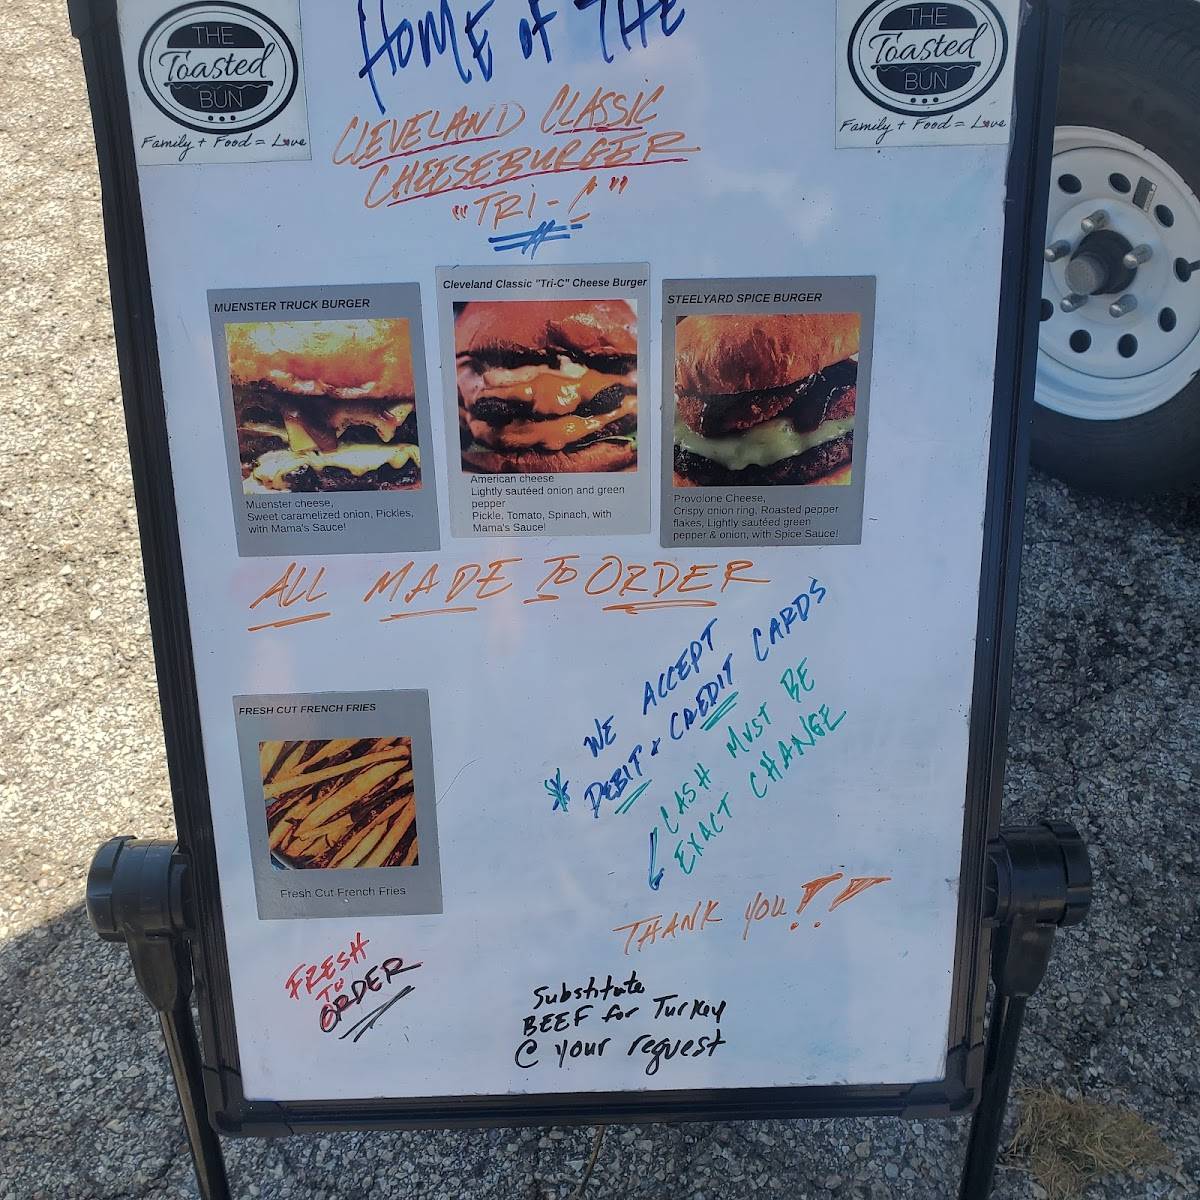 THE
Toasted
BUN
Family + Food = Love
THE
Toasted
BUN
Family + Food = Love
HOME of THE
CLEVELAND CLASSIC
CHEESEBURGER
"TRI-C"
MUENSTER TRUCK BURGER
Muenster cheese,
Sweet caramelized onion, Pickles,
with Mama's Sauce!
Cleveland Classic "Tri-C" Cheese Burger
American cheese
Lightly sautéed onion and green
pepper
Pickle, Tomato, Spinach, with
Mama's Sauce!
STEELYARD SPICE BURGER
Provolone Cheese,
Crispy onion ring, Roasted pepper
flakes, Lightly sautéed green
pepper & onion, with Spice Sauce!
ALL MADE TO ORDER
* WE ACCEPT
DEBIT & CREDIT CARDS
CASH MUST BE
EXACT CHANGE
THANK YOU!!
FRESH CUT FRENCH FRIES
Fresh Cut French Fries
FRESH
TO
ORDER
Substitute
BEEF for Turkey
@ your request